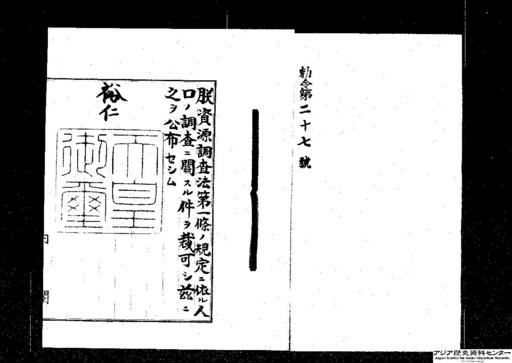 勅令第二十七號
朕資源調査法第一條ノ規定ニ依ル人
口ノ調査ニ關スル件ヲ裁可シ茲ニ
之ヲ公布セシム
裕仁
天皇
御璽
内
閣
アジア歴史資料センター
Japan Center for Asian Historical Records